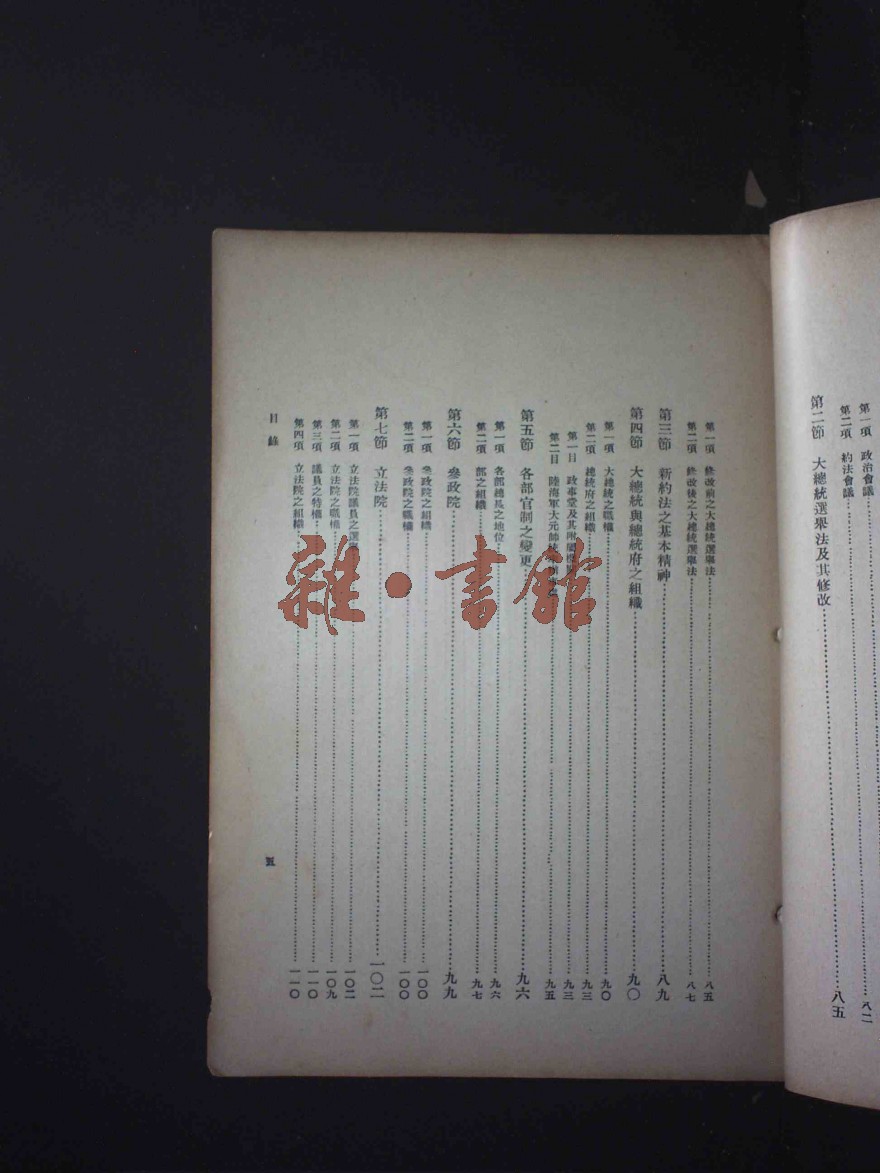 第一項　政治會議
第二項　約法會議……八二
第二節　大總統選舉法及其修改……八五
第一項　修改前之大總統選舉法……八五
第二項　修改後之大總統選舉法……八七
第三節　新約法之基本精神……八九
第四節　大總統與總統府之組織……九〇
第一項　大總統之職權……九〇
第二項　總統府之組織……九三
第一目　政事堂及其附屬……九三
第二目　陸海軍大元帥……九五
第五節　各部官制之變更……九六
第一項　各部總長之地位……九六
第二項　部之組織……九七
第六節　參政院……九九
第一項　參政院之組織……一〇〇
第二項　參政院之職權……一〇〇
第七節　立法院……一〇二
第一項　立法院議員之選舉……一〇二
第二項　立法院之職權……一〇九
第三項　議員之特權……一一〇
第四項　立法院之組織……一一〇
目錄
五
雜·書館